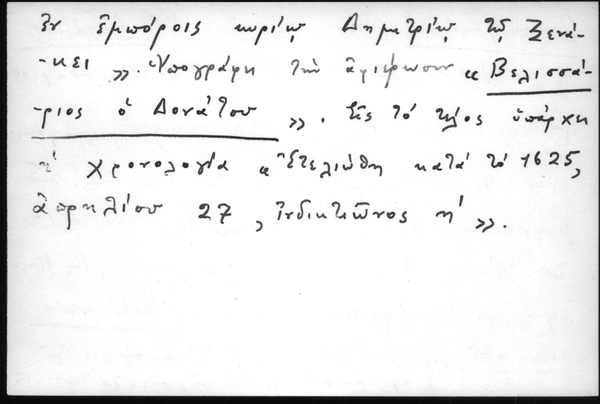 ἐν ἐμπόροις κυρίῳ Δημητρίῳ τῷ Ξενά-
-κει ». Ὑπογράφει τὴν ἀφιέρωσιν « Βελισσά-
-ριος ὁ Δονάτου ». Εἰς τὸ τέλος ὑπάρχει
ἡ χρονολογία « Ἐτελιώθη κατὰ τὸ 1625,
ἀπρηλίου 27, ἰνδικτιῶνος η' ».